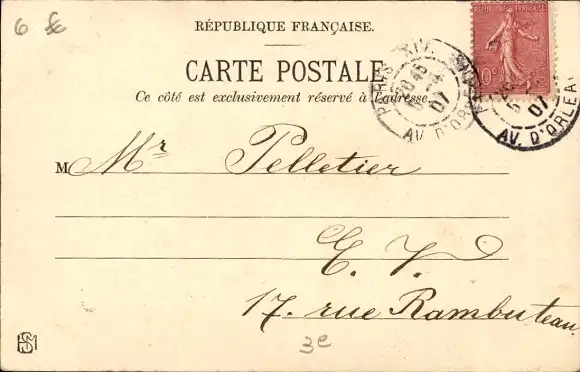 6 fc
RÉPUBLIQUE FRANÇAISE.
RÉPUBLIQUE FRANÇAISE
10c
CARTE POSTALE
Ce côté est exclusivement réservé à l'adresse.
PARIS XIV
AV. D'ORLEANS
07
PARIS XIV
AV. D'ORLEA
07
M Mr Pelletier
E. V.
17. rue Rambuteau
3e